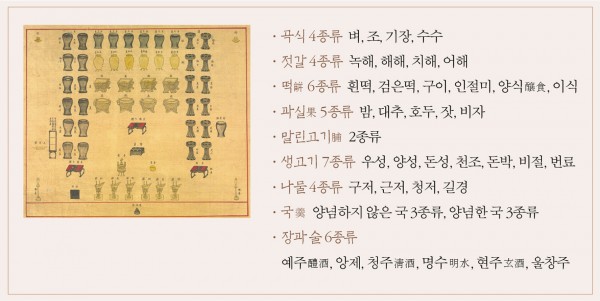 · 곡식 4종류 벼, 조, 기장, 수수
· 젓갈 4종류 녹해, 해해, 치해, 어해
· 떡餠 6종류 흰떡, 검은떡, 구이, 인절미, 양식釀食, 이식
· 과실果 5종류 밤, 대추, 호두, 잣, 비자
· 말린고기脯 2종류
· 생고기 7종류 우성, 양성, 돈성, 천조, 돈박, 비절, 번료
· 나물 4종류 구저, 근저, 청저, 길경
· 국羹 양념하지 않은 국 3종류, 양념한 국 3종류
· 장과 술 6종류
예주醴酒, 앙제, 청주淸酒, 명수明水, 현주玄酒, 울창주